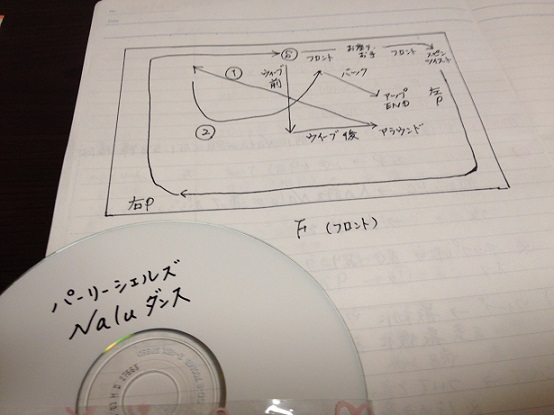 ⑤
フロント
お座り
お手
フロント
スピン
ツイスト
①
ウィーブ
前
バック
アップ
END
左
P
②
ウィーブ 後
アラウンド
右P
下 (フロント)
パーリーシェルズ
Nalu ダンス